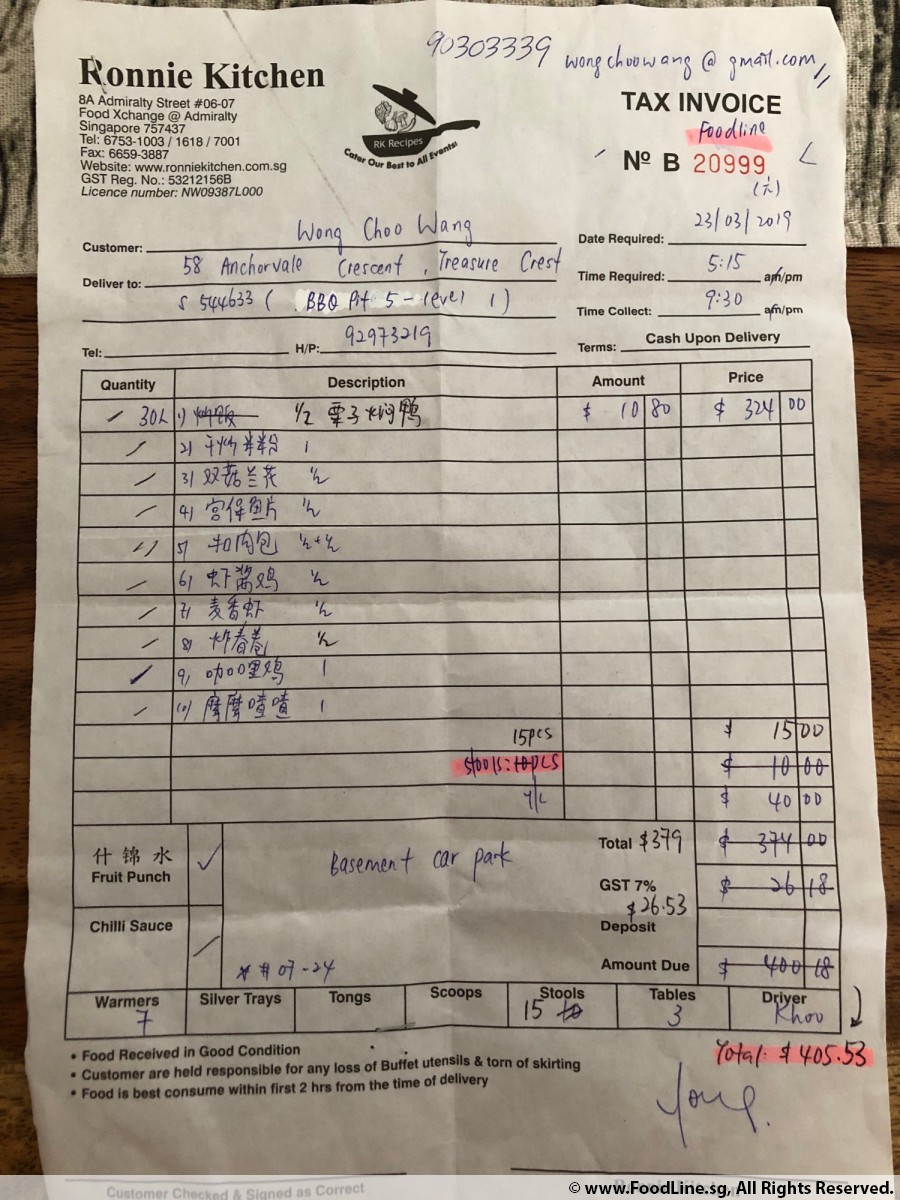 90303339 wongchoowang@gmail.com
Ronnie Kitchen
8A Admiralty Street #06-07
Food Xchange @ Admiralty
Singapore 757437
Tel: 6753-1003 / 1618 / 7001
Fax: 6659-3887
Website: www.ronniekitchen.com.sg
GST Reg. No.: 53212156B
Licence number: NW09387L000
RK Recipes
Cater Our Best to All Events!
TAX INVOICE
Foodline
Nº B 20999
(六)
Customer: Wong Choo Wang
Deliver to: 58 Anchorvale Crescent, Treasure Crest
S 544633 ( BBQ Pit 5 - level 1 )
Tel: H/P: 92973219
Date Required: 23/03/2019
Time Required: 5:15 am/pm
Time Collect: 9:30 am/pm
Terms: Cash Upon Delivery
Quantity Description Amount Price
30 1) 炒饭 1/2 栗子焖鸭 $ 10 80 $ 324 00
2) 干炒 粉 1
3) 双菇兰花 1/2
4) 宫保鱼片 1/2
5) 扣肉包 1/2+1/2
6) 虾酱鸡 1/2
7) 麦香虾 1/2
8) 炸春卷 1/2
9) 咖喱鸡 1
10) 摩摩喳喳 1
15pcs $ 15 00
Stools: 10pcs $ 10 00
$ 40 00
什錦水
Fruit Punch
Basement car park
Total $379 $ 374 00
GST 7% $ 26 18
$26.53
Deposit
Chilli Sauce
# 07-24
Amount Due $ 400 18
Warmers Silver Trays Tongs Scoops Stools Tables Driver
7 15 10 3 Khoo
• Food Received in Good Condition
• Customer are held responsible for any loss of Buffet utensils & torn of skirting
• Food is best consume within first 2 hrs from the time of delivery
Total: $ 405.53
Customer Checked & Signed as Correct
© www.FoodLine.sg, All Rights Reserved.